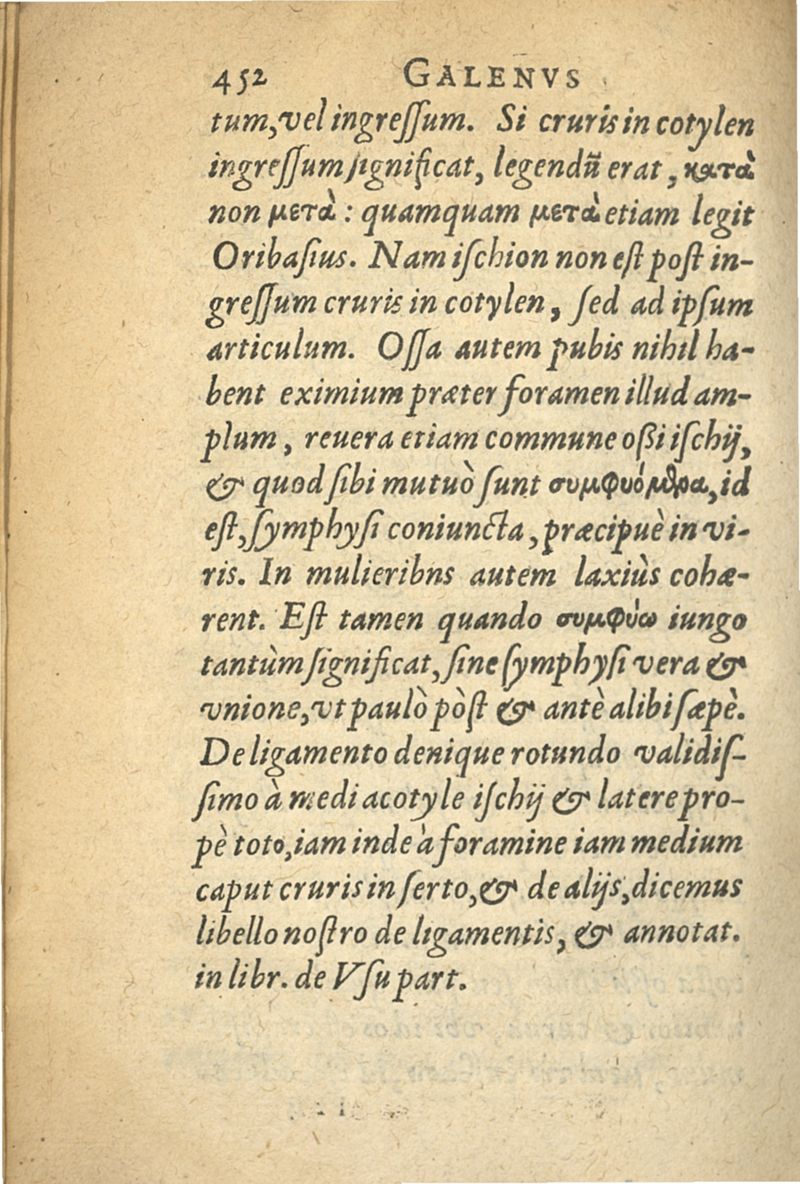 452 GALENVS
tum, vel ingreſſum. Si cruris in cotylen
ingreſſum ſignificat, legendū erat, κατὰ
non μετὰ: quamquam μετὰ etiam legit
Oribaſius. Nam iſchion non eſt poſt in-
greſſum cruris in cotylen, ſed ad ipſum
articulum. Oſſa autem pubis nihil ha-
bent eximium præter foramen illud am-
plum, reuera etiam commune oßi iſchij,
& quod ſibi mutuò ſunt συμφυόμθρα, id
eſt, ſymphyſi coniuncta, præcipuè in vi-
ris. In mulieribns autem laxiùs cohæ-
rent. Eſt tamen quando συμφύω iungo
tantùm ſignificat, ſine ſymphyſi vera &
vnione, vt paulò pòſt & antè alibi ſæpè.
De ligamento denique rotundo validiſ-
ſimo à media cotyle iſchij & latere pro-
pè toto, iam inde à foramine iam medium
caput cruris inſerto, & de alijs, dicemus
libello noſtro de ligamentis, & annotat.
in libr. de Vſu part.